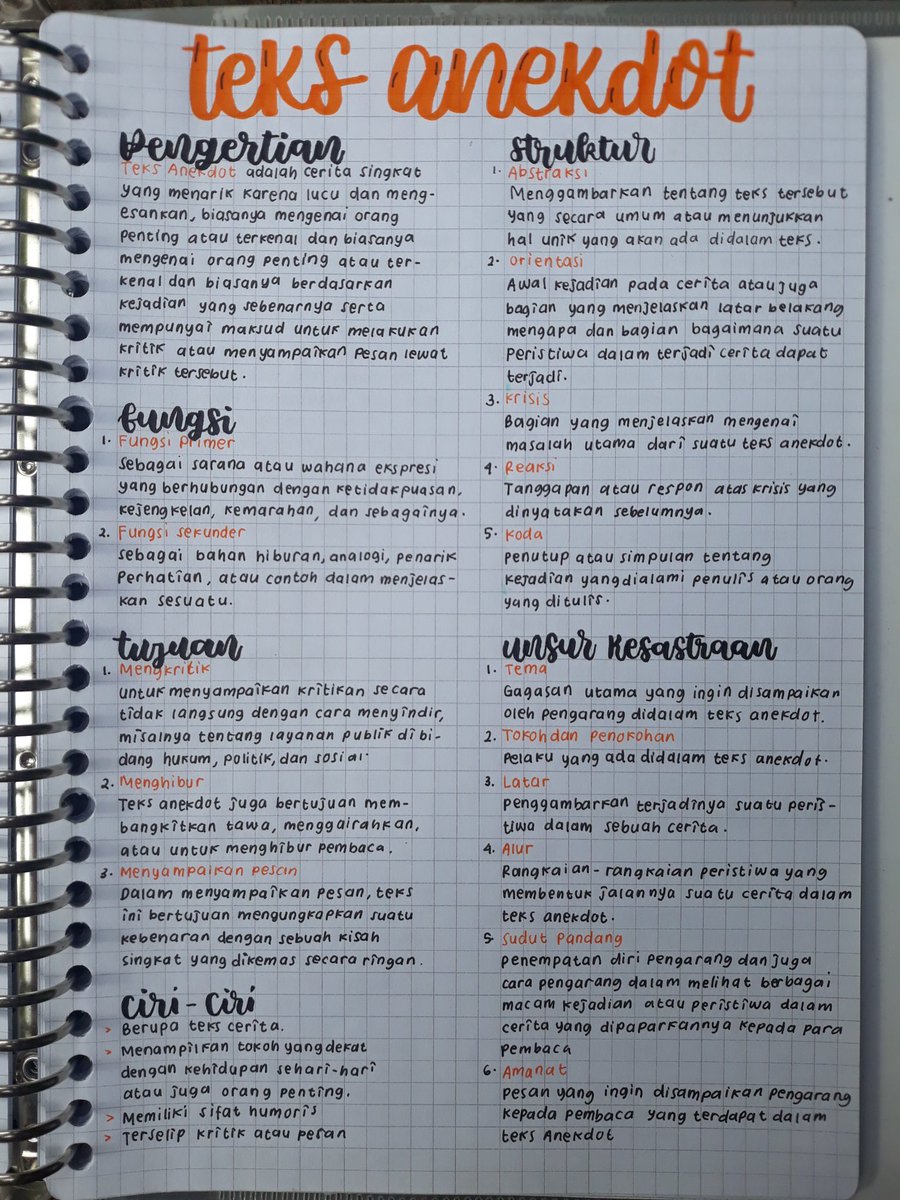 teks anekdot
Pengertian
Teks Anekdot adalah cerita singkat
yang menarik karena lucu dan meng-
esankan, biasanya mengenai orang
penting atau terkenal dan biasanya
mengenai orang penting atau ter-
kenal dan biasanya berdasarkan
kejadian yang sebenarnya serta
mempunyai maksud untuk melakukan
kritik atau menyampaikan pesan lewat
kritik tersebut.
fungsi
1. Fungsi primer
sebagai sarana atau wahana ekspresi
yang berhubungan dengan ketidakpuasan,
kejengkelan, kemarahan, dan sebagainya.
2. Fungsi sekunder
sebagai bahan hiburan, analogi, penarik
perhatian, atau contoh dalam menjelas-
kan sesuatu.
tujuan
1. Mengkritik
untuk menyampaikan kritikan secara
tidak langsung dengan cara menyindir,
misalnya tentang layanan publik di bi-
dang hukum, politik, dan sosial.
2. Menghibur
Teks anekdot juga bertujuan mem-
bangkitkan tawa, menggairahkan,
atau untuk menghibur pembaca.
3. Menyampaikan pesan
Dalam menyampaikan pesan, teks
ini bertujuan mengungkapkan suatu
kebenaran dengan sebuah kisah
singkat yang dikemas secara ringan.
Ciri-Ciri
> Berupa teks cerita.
> Menampilkan tokoh yang dekat
dengan kehidupan sehari-hari
atau juga orang penting.
> Memiliki sifat humoris
> Terselip kritik atau pesan
struktur
1. Abstraksi
Menggambarkan tentang teks tersebut
yang secara umum atau menunjukkan
hal unik yang akan ada didalam teks.
2. orientasi
Awal kejadian pada cerita atau juga
bagian yang menjelaskan latar belakang
mengapa dan bagian bagaimana suatu
peristiwa dalam terjadi cerita dapat
terjadi.
3. Krisis
Bagian yang menjelaskan mengenai
masalah utama dari suatu teks anekdot.
4. Reaksi
Tanggapan atau respon atas krisis yang
dinyatakan sebelumnya.
5. Koda
penutup atau simpulan tentang
kejadian yang dialami penulis atau orang
yang ditulis.
unsur kesastraan
1. Tema
Gagasan utama yang ingin disampaikan
oleh pengarang didalam teks anekdot.
2. Tokoh dan penokohan
pelaku yang ada didalam teks anekdot.
3. Latar
penggambarkan terjadinya suatu peris-
tiwa dalam sebuah cerita.
4. Alur
Rangkaian-rangkaian peristiwa yang
membentuk jalannya suatu cerita dalam
teks anekdot.
5. Sudut Pandang
penempatan diri pengarang dan juga
cara pengarang dalam melihat berbagai
macam kejadian atau peristiwa dalam
cerita yang dipaparkannya kepada para
pembaca
6. Amanat
pesan yang ingin disampaikan pengarang
kepada pembaca yang terdapat dalam
teks Anekdot